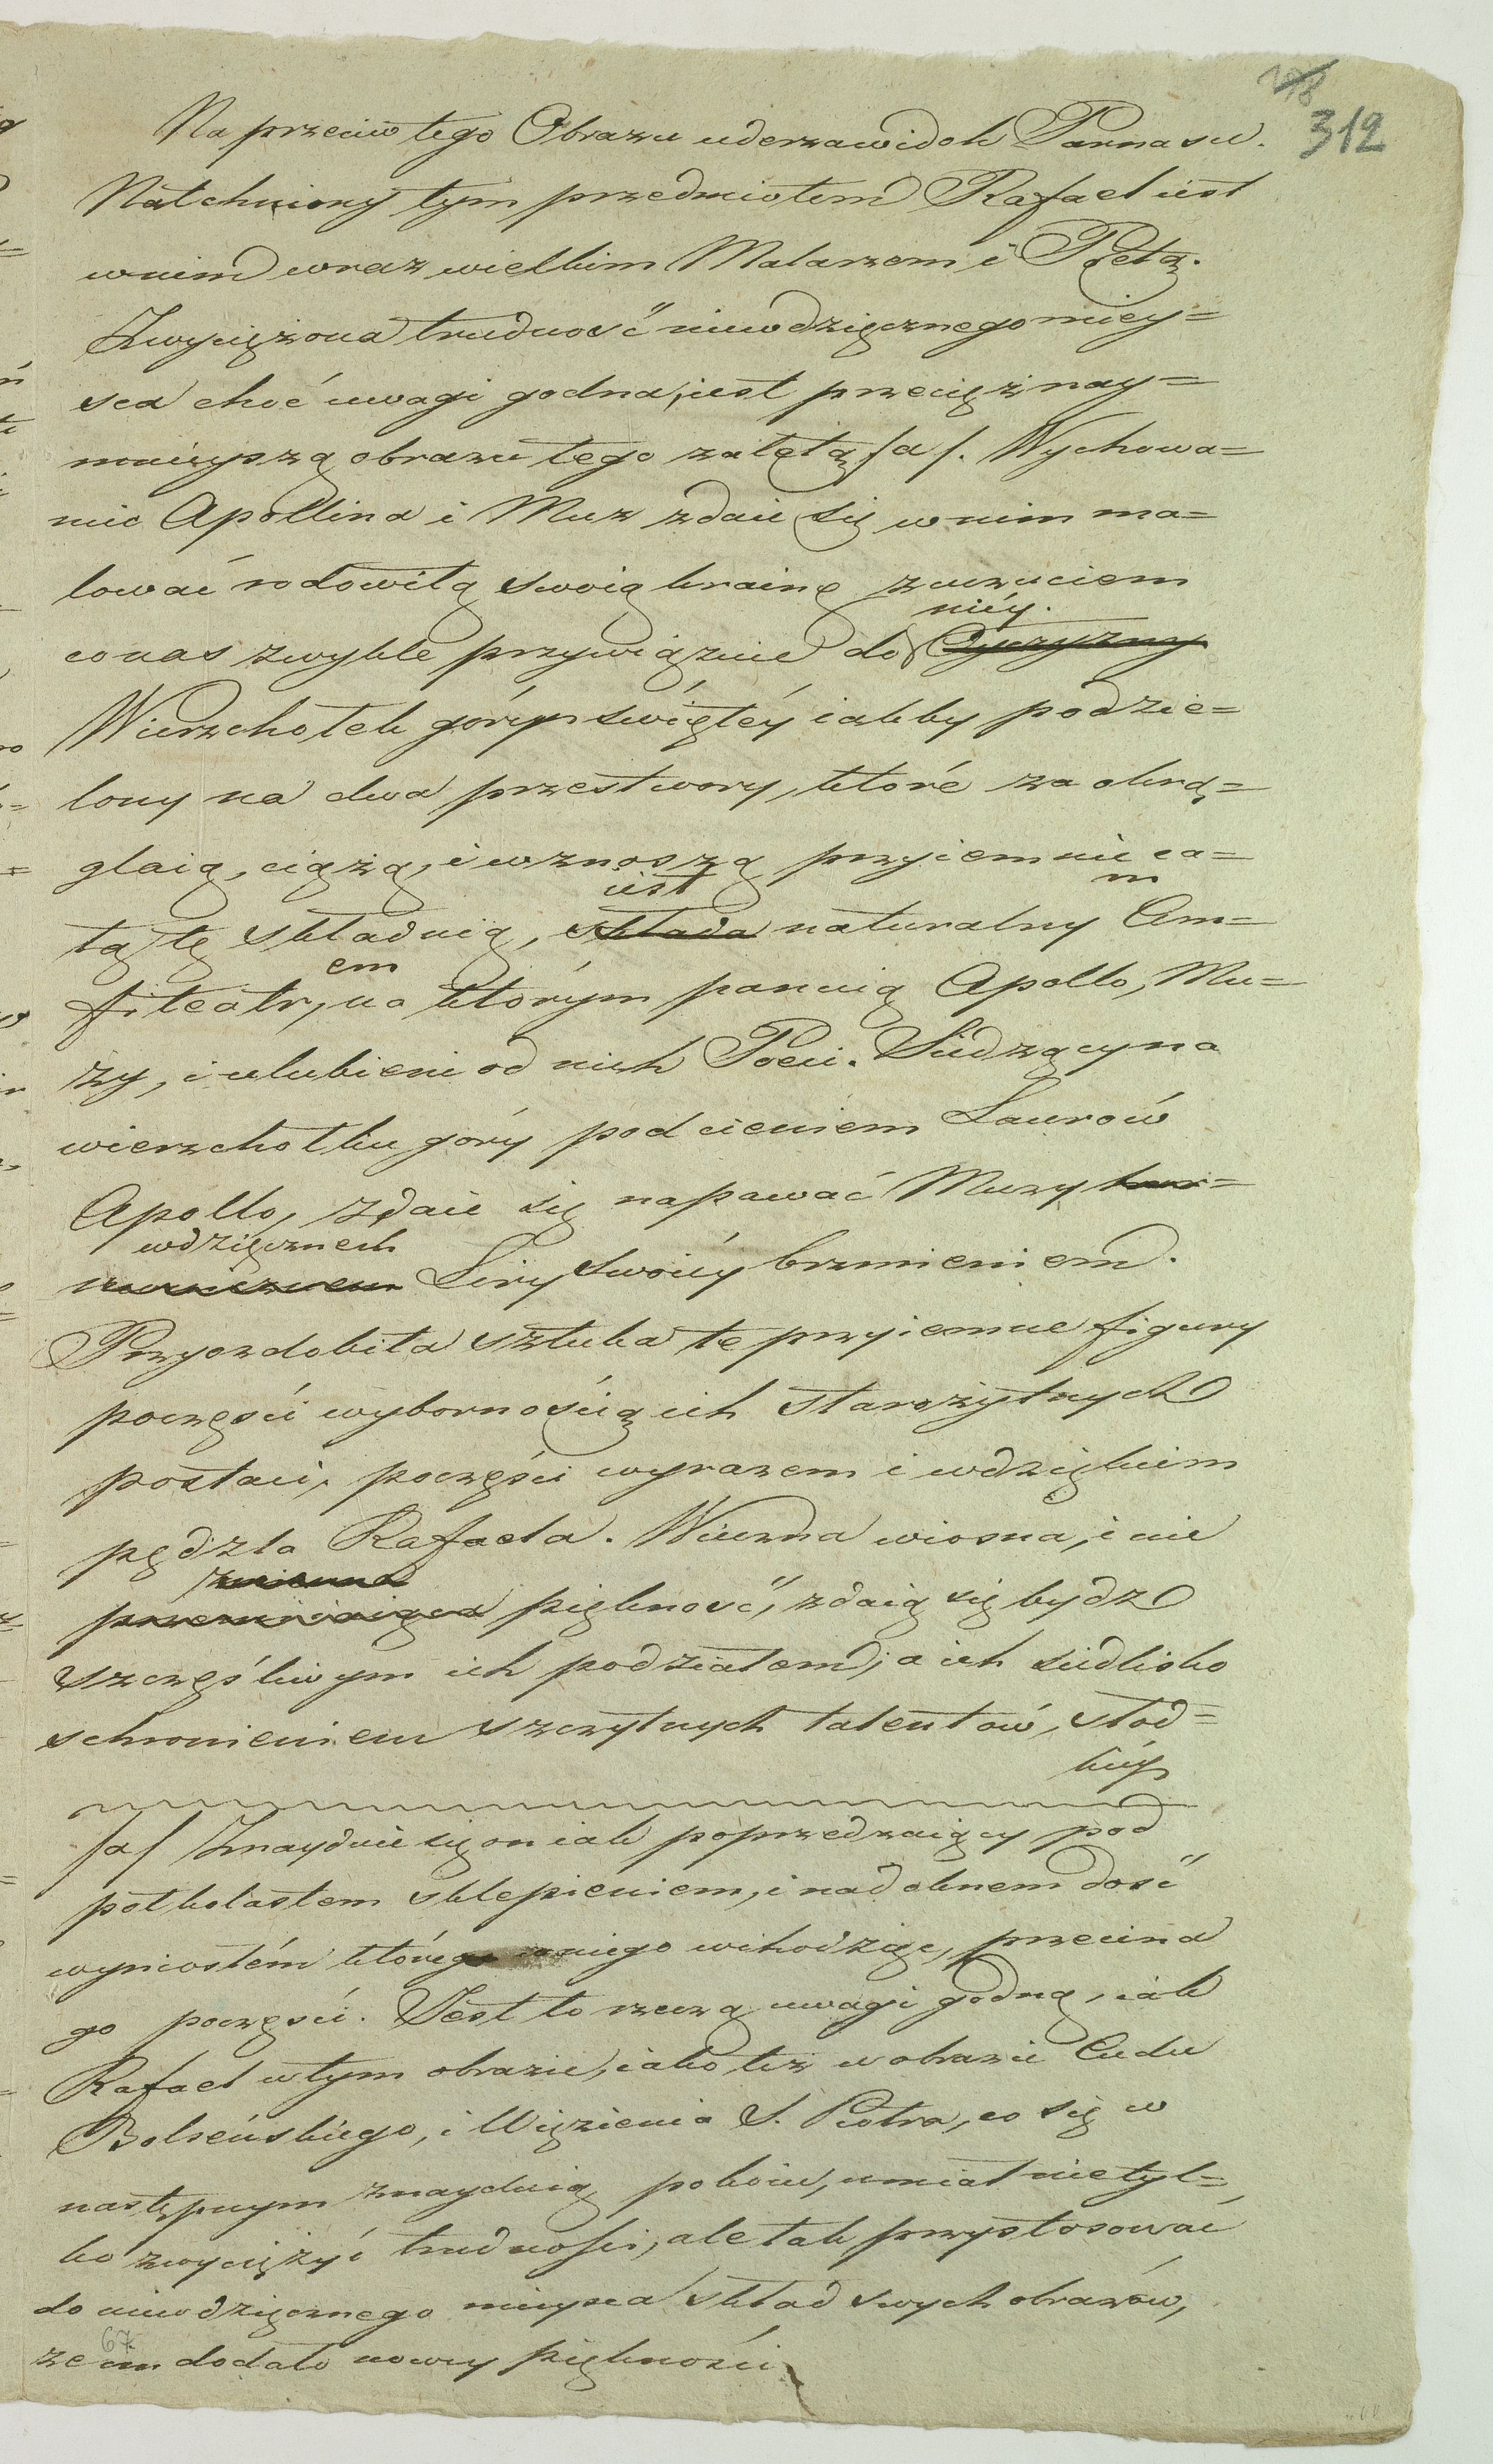 198
312
Na przeciw tego Obrazu uderza widok Parnasu.
Natchniony tym przedmiotem Rafael iest
w nim wraz wielkim Malarzem i Poetą.
Zwyciężona trudność niewdzięcznego miey=
sca choć uwagi godna, iest przecięż nay=
mnieyszą obrazu tego zaletą /a/. Wychowa=
niec Apollina i Muz zdaie się w nim ma=
lować rodowitą swoią krainę z uczuciem
niéy.
co nas zwykle przywięzuie do Oyczyzny
Wierzchołek góry świętéy iakby podzie=
lony na dwa przestwory, które zaokrą=
glaią, ciążą, i wznoszą przyiemnie ca=
iest m
łą tę składnią, składa naturalny Am=
em
fiteatr, na którym panuią Apollo, Mu=
zy, i ulubieni od nich Poeci. Siedzący na
wierzchołku góry pod cieniem Laurów
Apollo, zdaie się napawać Muzy
wdzięcznech
Liry swoiéy brzmieniem.
Przyozdobiła sztuka te przyiemne figury
poczęści wybornością ich starożytnych
postaci, poczęści wyrazem i wdziękiem
pędzla Rafaela. Wieczna wiosna, i nie
zmienna
przemiiaiąca piękność, zdaią się bydz
szczęśliwym ich podziałem; a ich siedlisko
schronieniem szczytnych talentów, słod=
kiéy
/a/ Znayduie się on iak poprzedzaiący pod
półkolastem sklepieniem, i nad oknem dość
wyniosłém które w niego wchodząc, przecina
go poczęści. Jest to rzeczą uwagi godną, iak
Rafael w tym obrazie, iako też w obrazie Cudu
Bolseńskiego, i Więzienia S. Piotra, co się w
następnym znayduią pokoiu, umiał nie tyl=
ko zwyciężyć trudności, ale tak przystosować
do niewdzięcznego mieysca skład swych obrazów,
67
że im dodało nowey piękności